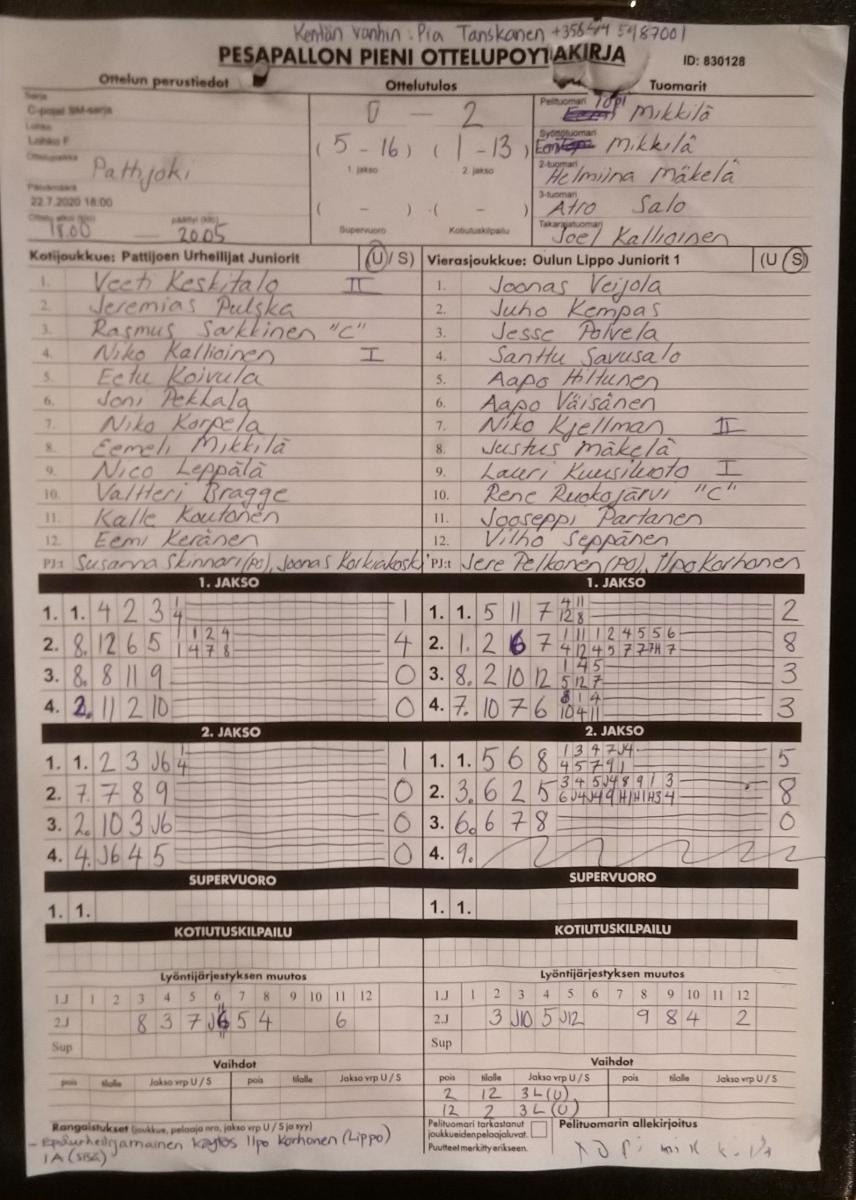 Kentän vanhin: Pia Tanskanen
PESÄPALLON PIENI OTTELUPÖYTÄKIRJA ID: 830128
Ottelun perustiedot Ottelutulos Tuomarit
Sarja
C-pojat SM-sarja
Lohko
Lohko F
Ottelupaikka
Pattijoki
Päivämäärä
22.7.2020 18:00
Ottelu alkoi (klo) päättyi (klo)
18.00 — 20.05
0 — 2
(5 - 16) (1 - 13)
1. jakso 2. jakso
( - ) ( - )
Supervuoro Kotiutuskilpailu
Pelituomari Topi Mikkilä
Syöttötuomari Mikkilä
2-tuomari
Helmiina Mäkelä
3-tuomari
Atro Salo
Takarajatuomari
Joel Kallioinen
Kotijoukkue: Pattijoen Urheilijat Juniorit (U / S) Vierasjoukkue: Oulun Lippo Juniorit 1 (U / S)
1. Veeti Keskitalo II 1. Joonas Veijola
2. Jeremias Pulska 2. Juho Kempas
3. Rasmus Sarkkinen "C" 3. Jesse Polvela
4. Niko Kallioinen I 4. Santtu Savusalo
5. Eetu Koivula 5. Aapo Hiltunen
6. Joni Pekkala 6. Aapo Väisänen
7. Niko Korpela 7. Niko Kjellman II
8. Eemeli Mikkilä 8. Justus Mäkelä
9. Nico Leppälä 9. Lauri Kuusiluoto I
10. Valtteri Bragge 10. Rene Ruokojärvi "C"
11. Kalle Koutonen 11. Jooseppi Partanen
12. Eemi Keränen 12. Vilho Seppänen
PJ:t Susanna Skinnari (PO), Joonas Korkiakoski PJ:t Jere Pelkonen (PO), Ilpo Korhonen
1. JAKSO 1. JAKSO
1. 1. 4 2 3 1/4 1 1. 1. 5 11 7 4/12 11/8 2
2. 8. 12 6 5 1/1 1/4 2/7 4/8 4 2. 1. 2 6 7 8
3. 8. 8 11 9 0 3. 8. 2 10 12 1/5 4/12 5/7 3
4. 2. 11 2 10 0 4. 7. 10 7 6 8/10 1/4 4/11 3
2. JAKSO 2. JAKSO
1. 1. 2 3 J6 1/4 1 1. 1. 5 6 8 5
2. 7. 7 8 9 0 2. 3. 6 2 5 8
3. 2. 10 3 J6 0 3. 6. 6 7 8 0
4. 4. J6 4 5 0 4. 9.
SUPERVUORO SUPERVUORO
1. 1. 1. 1.
KOTIUTUSKILPAILU KOTIUTUSKILPAILU
Lyöntijärjestyksen muutos Lyöntijärjestyksen muutos
1.J 1 2 3 4 5 6 7 8 9 10 11 12 1.J 1 2 3 4 5 6 7 8 9 10 11 12
2.J 8 3 7 J6 5 4 6 2.J 3 J10 5 J12 9 8 4 2
Sup Sup
Vaihdot Vaihdot
pois tilalle Jakso vrp U / S pois tilalle Jakso vrp U / S pois tilalle Jakso vrp U / S pois tilalle Jakso vrp U / S
2 12 3L (U)
12 2 3L (U)
Rangaistukset (joukkue, pelaaja nro, jakso vrp U / S ja syy)
- Epäurheilijamainen käytös Ilpo Korhonen (Lippo)
1A (sisä)
Pelituomari tarkastanut
joukkueiden pelaajaluvat.
Puutteet merkitty erikseen.
Pelituomarin allekirjoitus